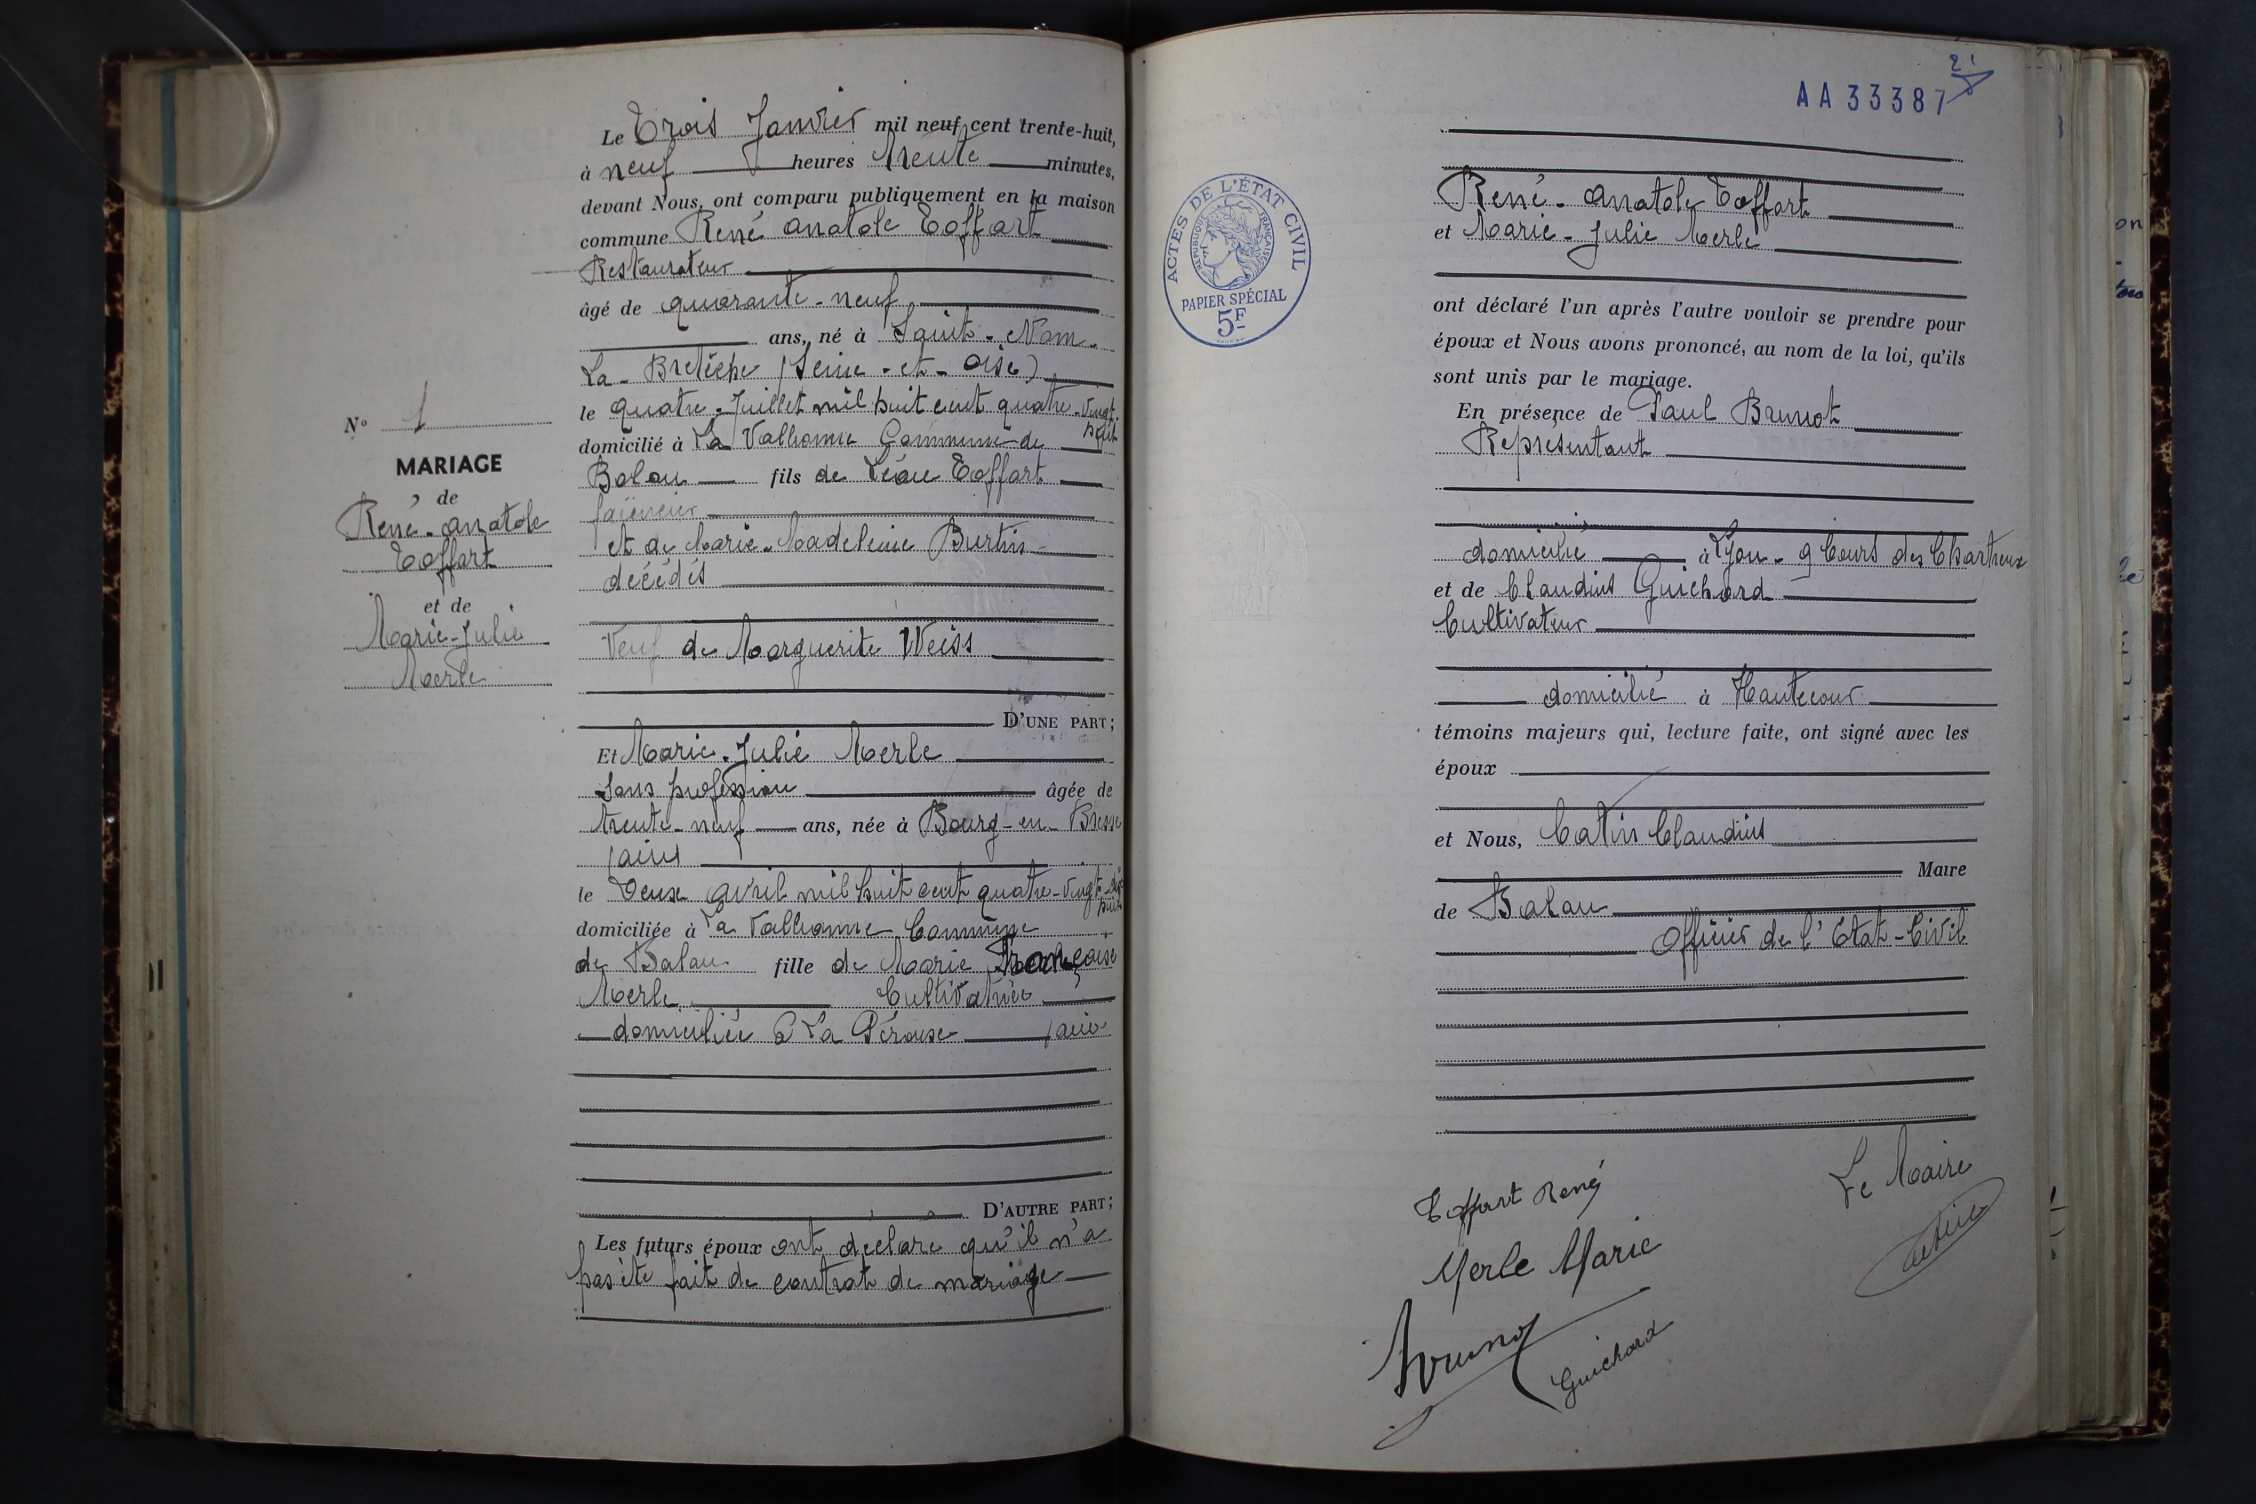 Le Trois Janvier mil neuf cent trente-huit,
à neuf heures trente minutes,
devant Nous, ont comparu publiquement en la maison
commune René Anatole Toffart
Restaurateur
âgé de quarante-neuf
ans, né à Saint-Nom-
La-Bretèche (Seine-et-Oise)
le quatre Juillet mil huit cent quatre-vingt-
huit
domicilié à La Vallionne Commune de
Balan fils de Léon Toffart
faïencier
et de Marie-Madeleine Burtin
décédés
Veuf de Marguerite Weiss
D'UNE PART;
Et Marie-Julie Merle
Sans profession âgée de
trente-neuf ans, née à Bourg-en-Bresse
(Ain)
le Deux Avril mil huit cent quatre-vingt-dix
huit
domiciliée à La Vallionne Commune
de Balan fille de Marie Françoise
Merle Cultivatrice
domiciliée à La Pérouse (Ain)
D'AUTRE PART;
Les futurs époux ont déclaré qu'il n'a
pas été fait de contrat de mariage
N° 1
MARIAGE
de
René-Anatole
Toffart
et de
Marie-Julie
Merle
21
AA 33387
ACTES DE L'ÉTAT CIVIL
RÉPUBLIQUE FRANÇAISE
PAPIER SPÉCIAL
5F
René-Anatole Toffart
et Marie-Julie Merle
ont déclaré l'un après l'autre vouloir se prendre pour
époux et Nous avons prononcé, au nom de la loi, qu'ils
sont unis par le mariage.
En présence de Paul Brunot
Représentant
domicilié à Lyon-9 Cours des Chartreux
et de Claudius Guichard
Cultivateur
domicilié à Hautecour
témoins majeurs qui, lecture faite, ont signé avec les
époux
et Nous, Catin Claudius
Maire
de Balan
Officier de l'Etat-Civil
Toffart René
Le Maire
Merle Marie
Catin
Brunot
Guichard